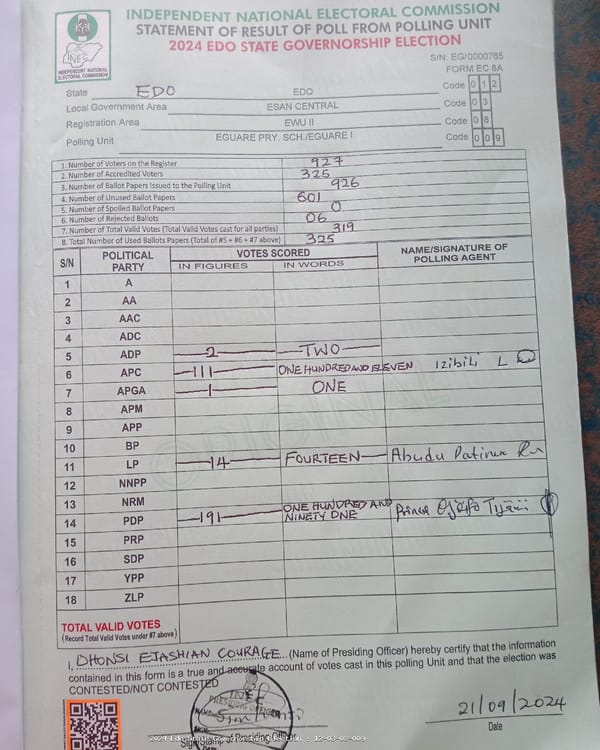 INDEPENDENT NATIONAL ELECTORAL COMMISSION
STATEMENT OF RESULT OF POLL FROM POLLING UNIT
2024 EDO STATE GOVERNORSHIP ELECTION
INEC
INDEPENDENT NATIONAL
ELECTORAL COMMISSION
S/N: EG/0000765
FORM EC 8A
State EDO EDO Code 0 1 2
Local Government Area ESAN CENTRAL Code 0 3
Registration Area EWU II Code 0 8
Polling Unit EGUARE PRY. SCH./EGUARE I Code 0 0 9
1. Number of Voters on the Register 927
2. Number of Accredited Voters 325
3. Number of Ballot Papers Issued to the Polling Unit 926
4. Number of Unused Ballot Papers 601
5. Number of Spoiled Ballot Papers 0
6. Number of Rejected Ballots 06
7. Number of Total Valid Votes (Total Valid Votes cast for all parties) 319
8. Total Number of Used Ballots Papers (Total of #5 + #6 + #7 above) 325
S/N POLITICAL PARTY VOTES SCORED NAME/SIGNATURE OF POLLING AGENT
IN FIGURES IN WORDS
1 A
2 AA
3 AAC
4 ADC
5 ADP 2 TWO
6 APC 111 ONE HUNDRED AND ELEVEN Izibili L
7 APGA 1 ONE
8 APM
9 APP
10 BP
11 LP 14 FOURTEEN Abudu
12 NNPP
13 NRM
14 PDP 191 ONE HUNDRED AND NINETY ONE Prince
15 PRP
16 SDP
17 YPP
18 ZLP
TOTAL VALID VOTES
(Record Total Valid Votes under #7 above)
I, DHONSI EJASHIAN COURAGE...(Name of Presiding Officer) hereby certify that the information
contained in this form is a true and accurate account of votes cast in this polling Unit and that the election was
CONTESTED/NOT CONTESTED
INEC
PRESIDING OFFICER
Sign/Stamp of Presiding Officer
21/09/2024
Date